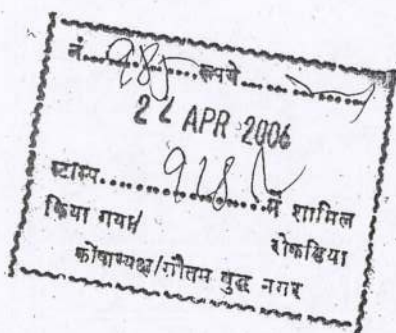 नं.........रूपये.........
24 APR 2006
स्टाम्प.........में शामिल
किया गया/ रोकडिया
कोषाध्यक्ष/गौतम बुद्ध नगर